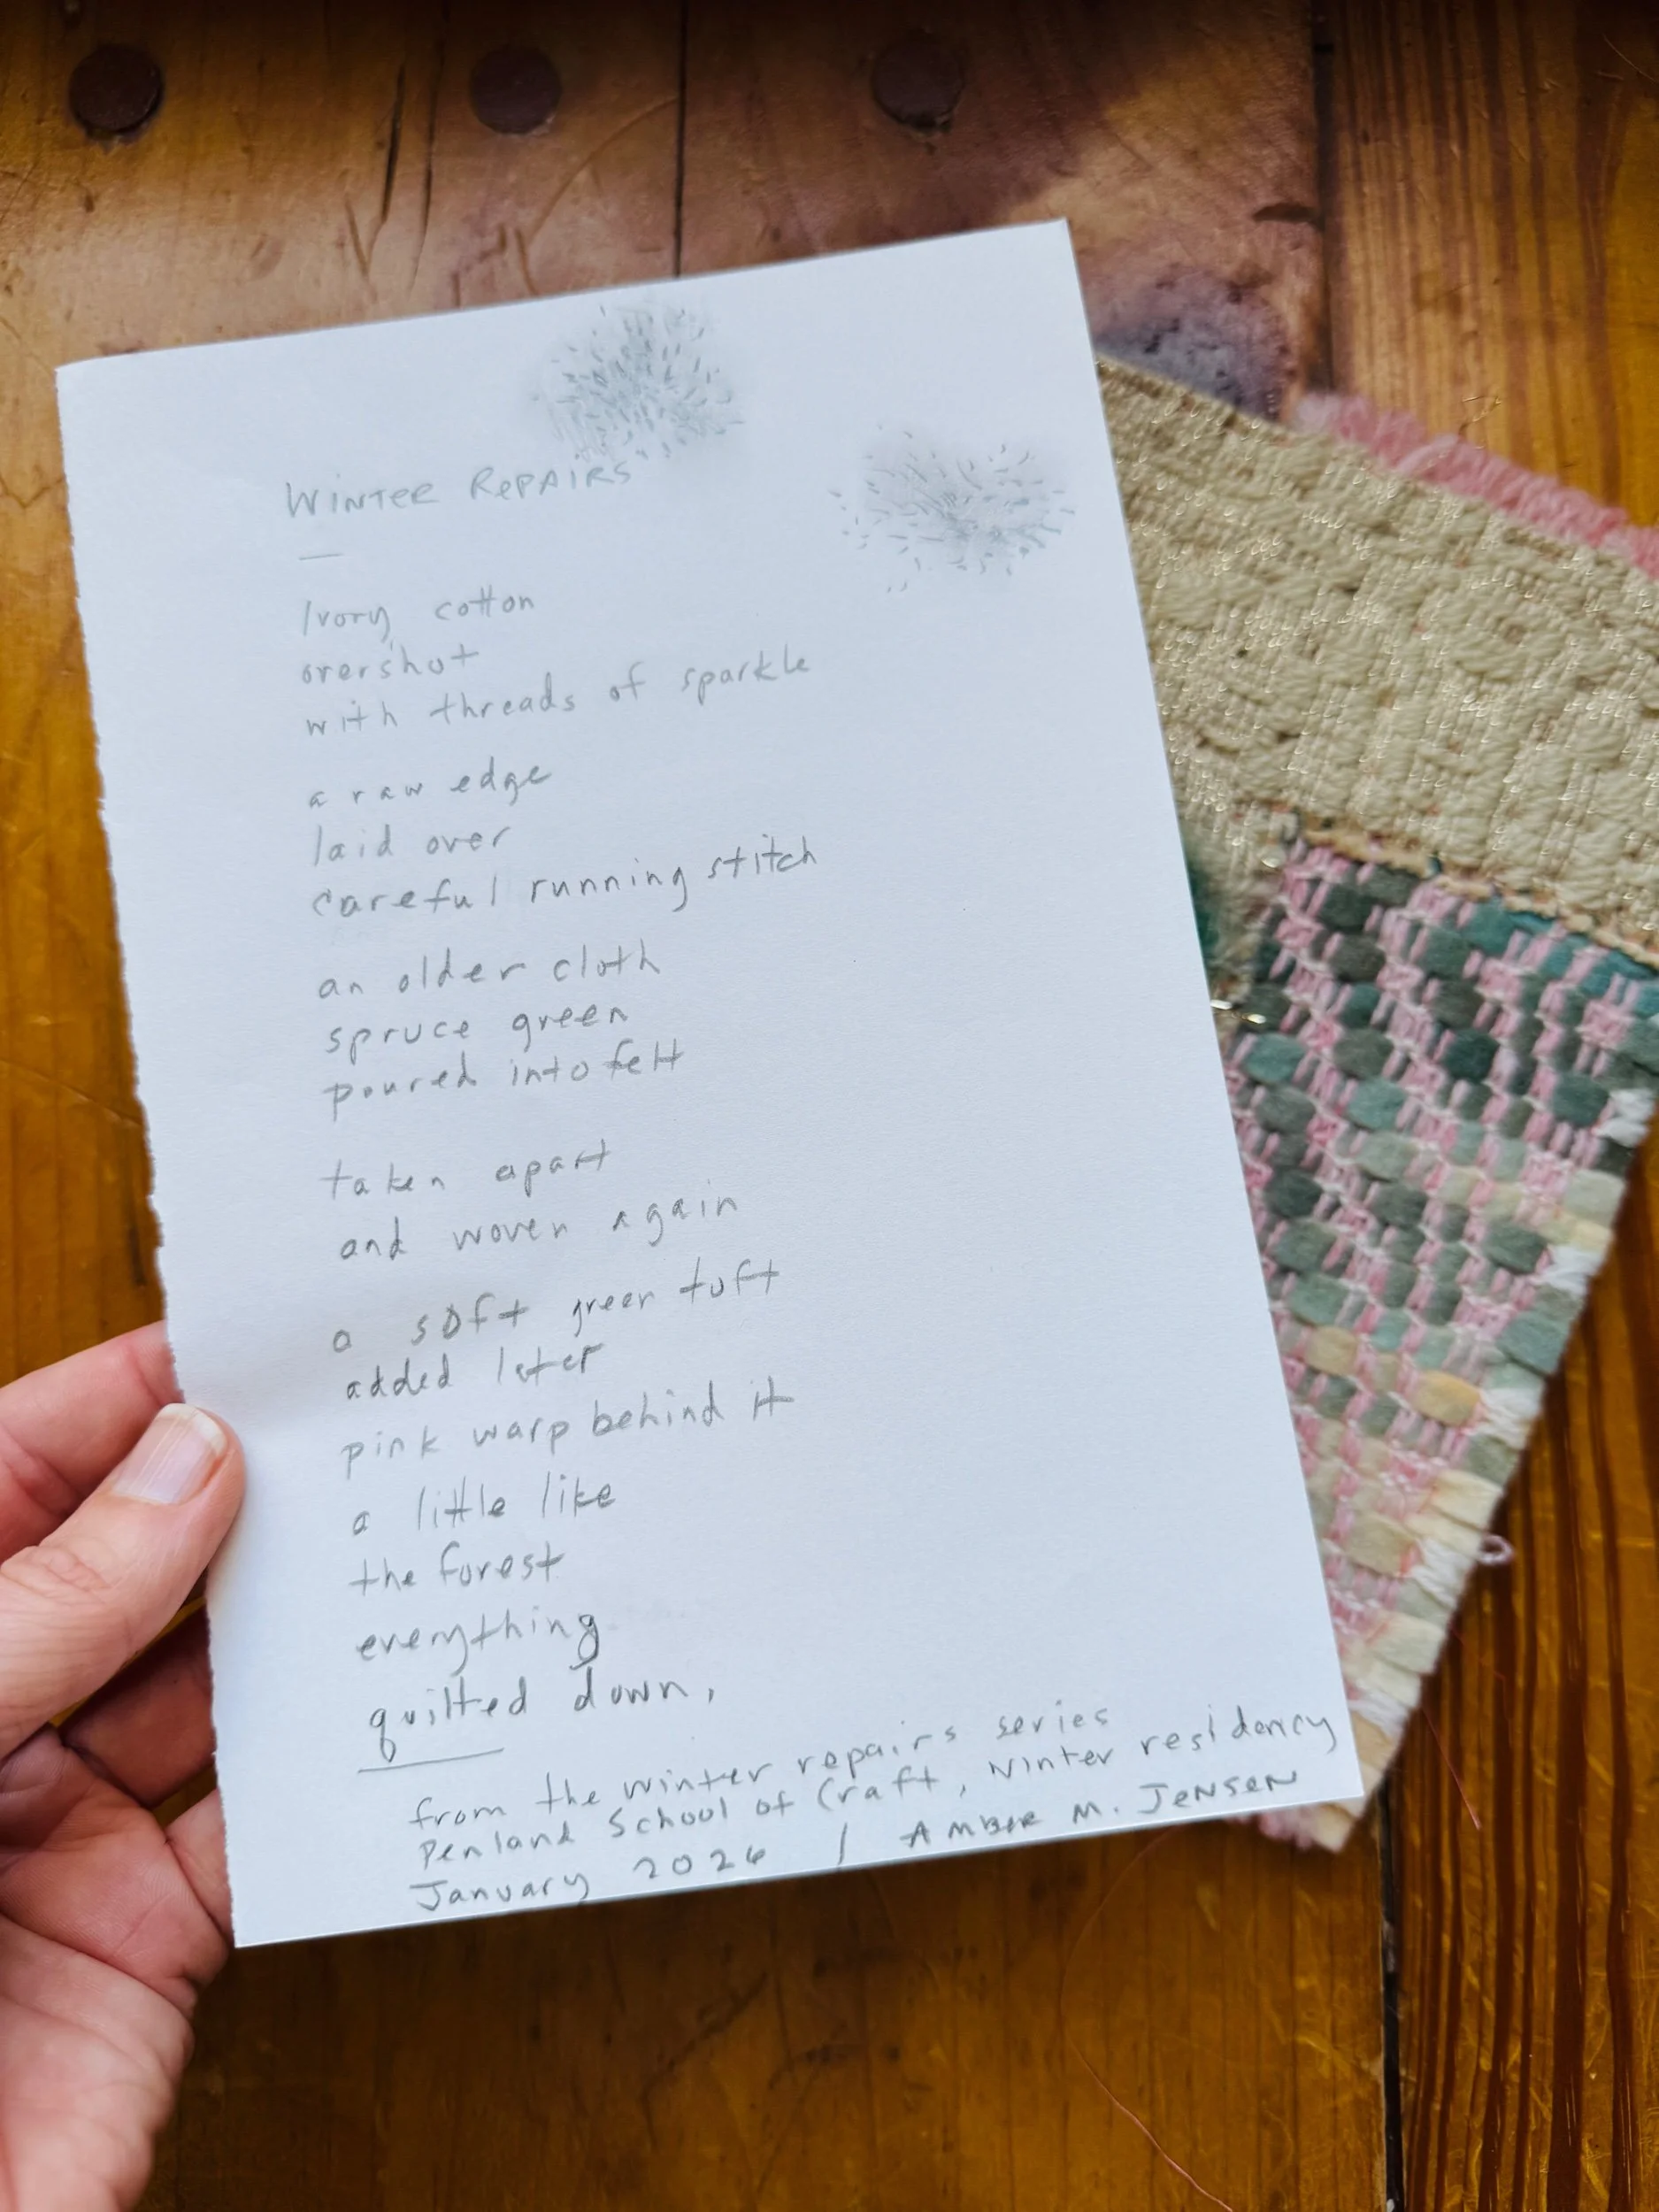 WINTER REPAIRS
—
Ivory cotton
overshot
with threads of sparkle
a raw edge
laid over
careful running stitch
an older cloth
spruce green
poured into felt
taken apart
and woven again
a soft green tuft
added later
pink warp behind it
a little like
the forest
everything
quilted down,
from the winter repairs series
Penland School of Craft, winter residency
January 2026 / AMBER M. JENSEN